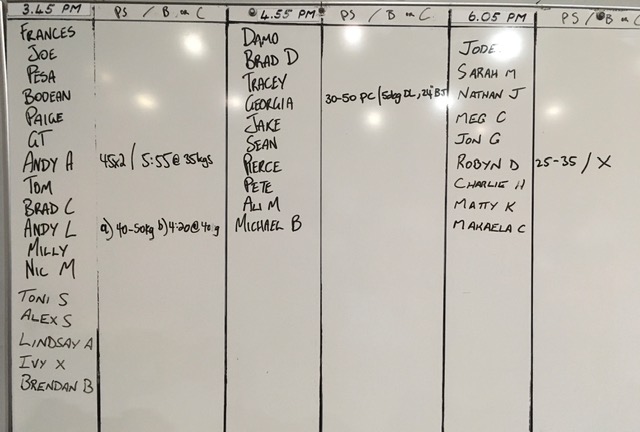 3.45 PM PS / B or C 4.55 PM PS / B or C 6.05 PM PS / B or C
FRANCES
JOE
PESA
BODEAN
PAIGE
GT
ANDY A 45x2 / 5:55 @ 35kgs
TOM
BRAD C
ANDY L a) 40-50kg b) 4:20 @ 40
MILLY
NIC M
TONI S
ALEX S
LINDSAY A
IVY X
BRENDAN B
DAMO
BRAD D
TRACEY
GEORGIA 30-50 PC / 50kg DL, 24" BJ
JAKE
SEAN
PIERCE
PETE
ALI M
MICHAEL B
JODE
SARAH M
NATHAN J
MEG C
JON G
ROBYN D 25-35 / X
CHARLIE H
MATTY K
MAKAELA C